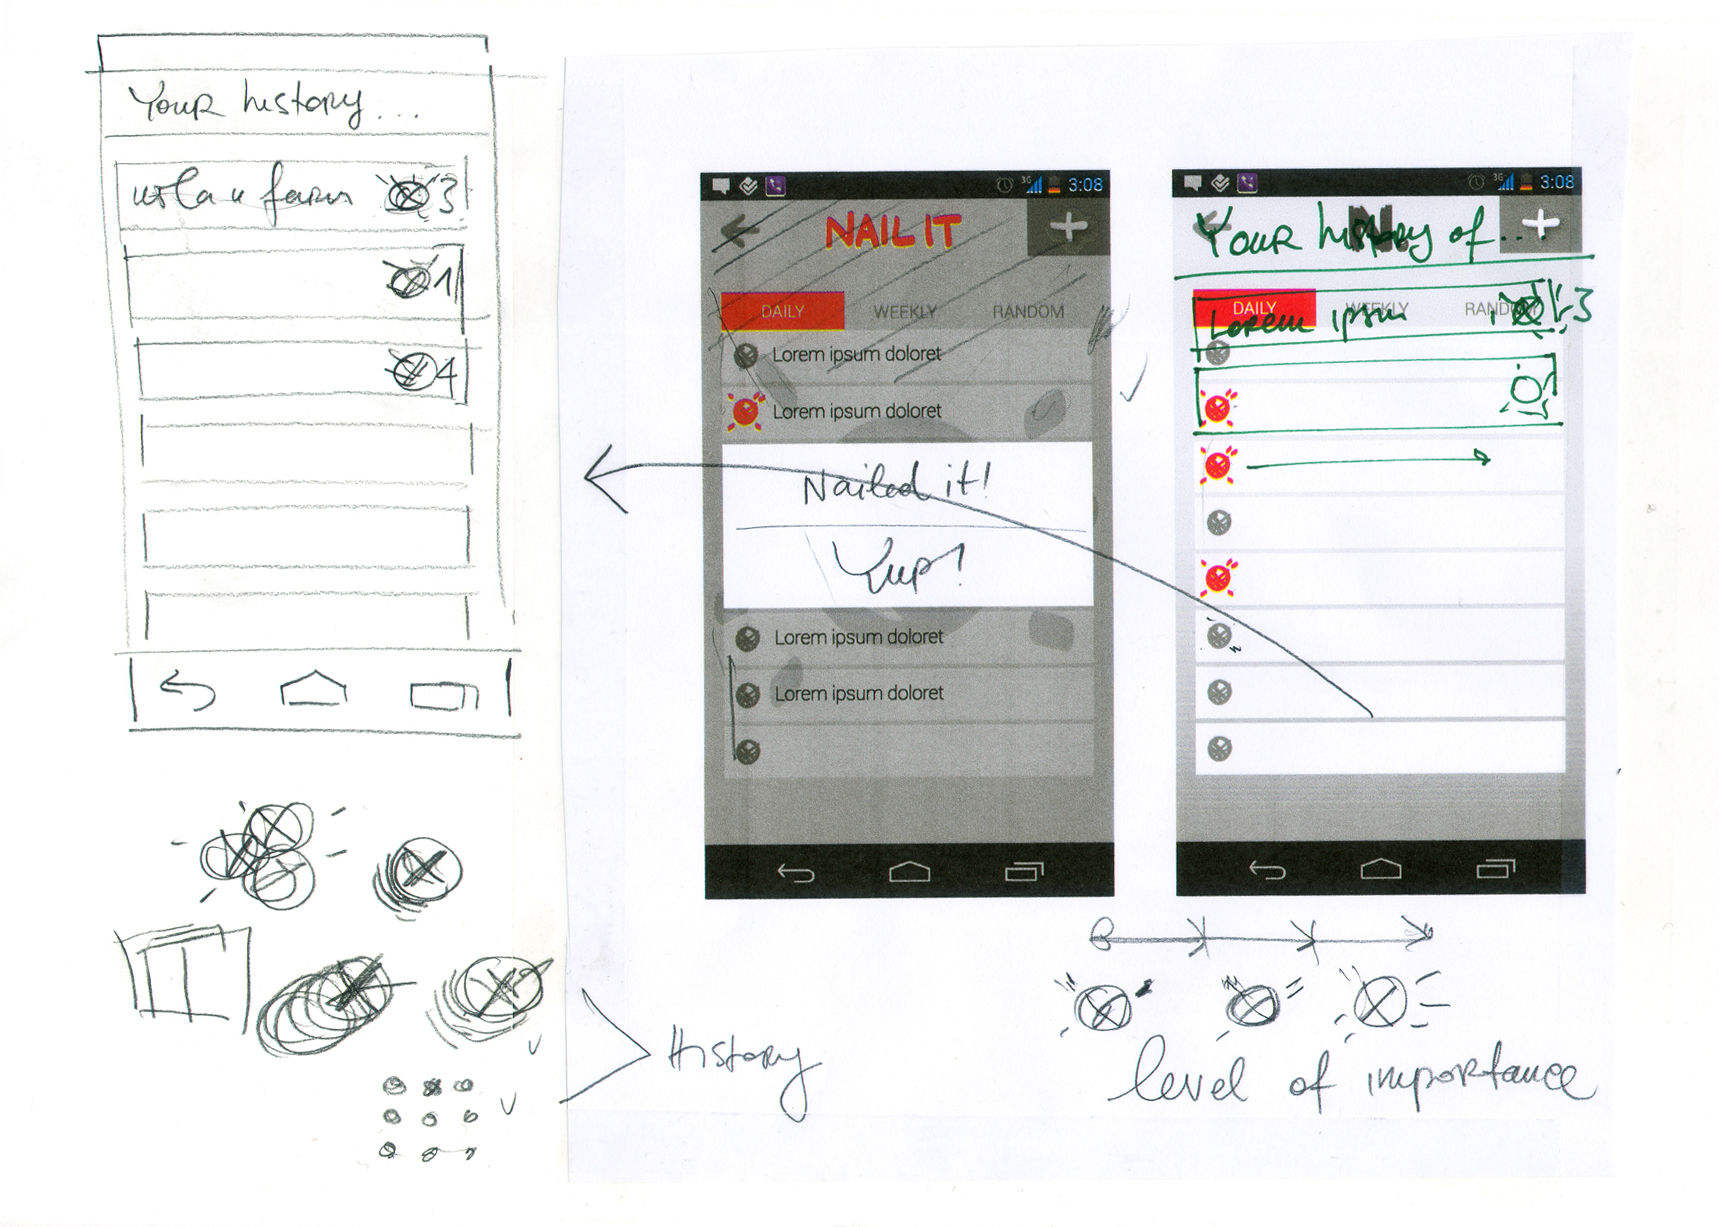 Your history...
3
1
4
3:08
NAIL IT
+
DAILY WEEKLY RANDOM
Lorem ipsum doloret
Lorem ipsum doloret
Nailed it!
Yup!
Lorem ipsum doloret
Lorem ipsum doloret
3:08
Your history of...
+
DAILY WEEKLY RANDOM
Lorem ipsum 3
History
level of importance